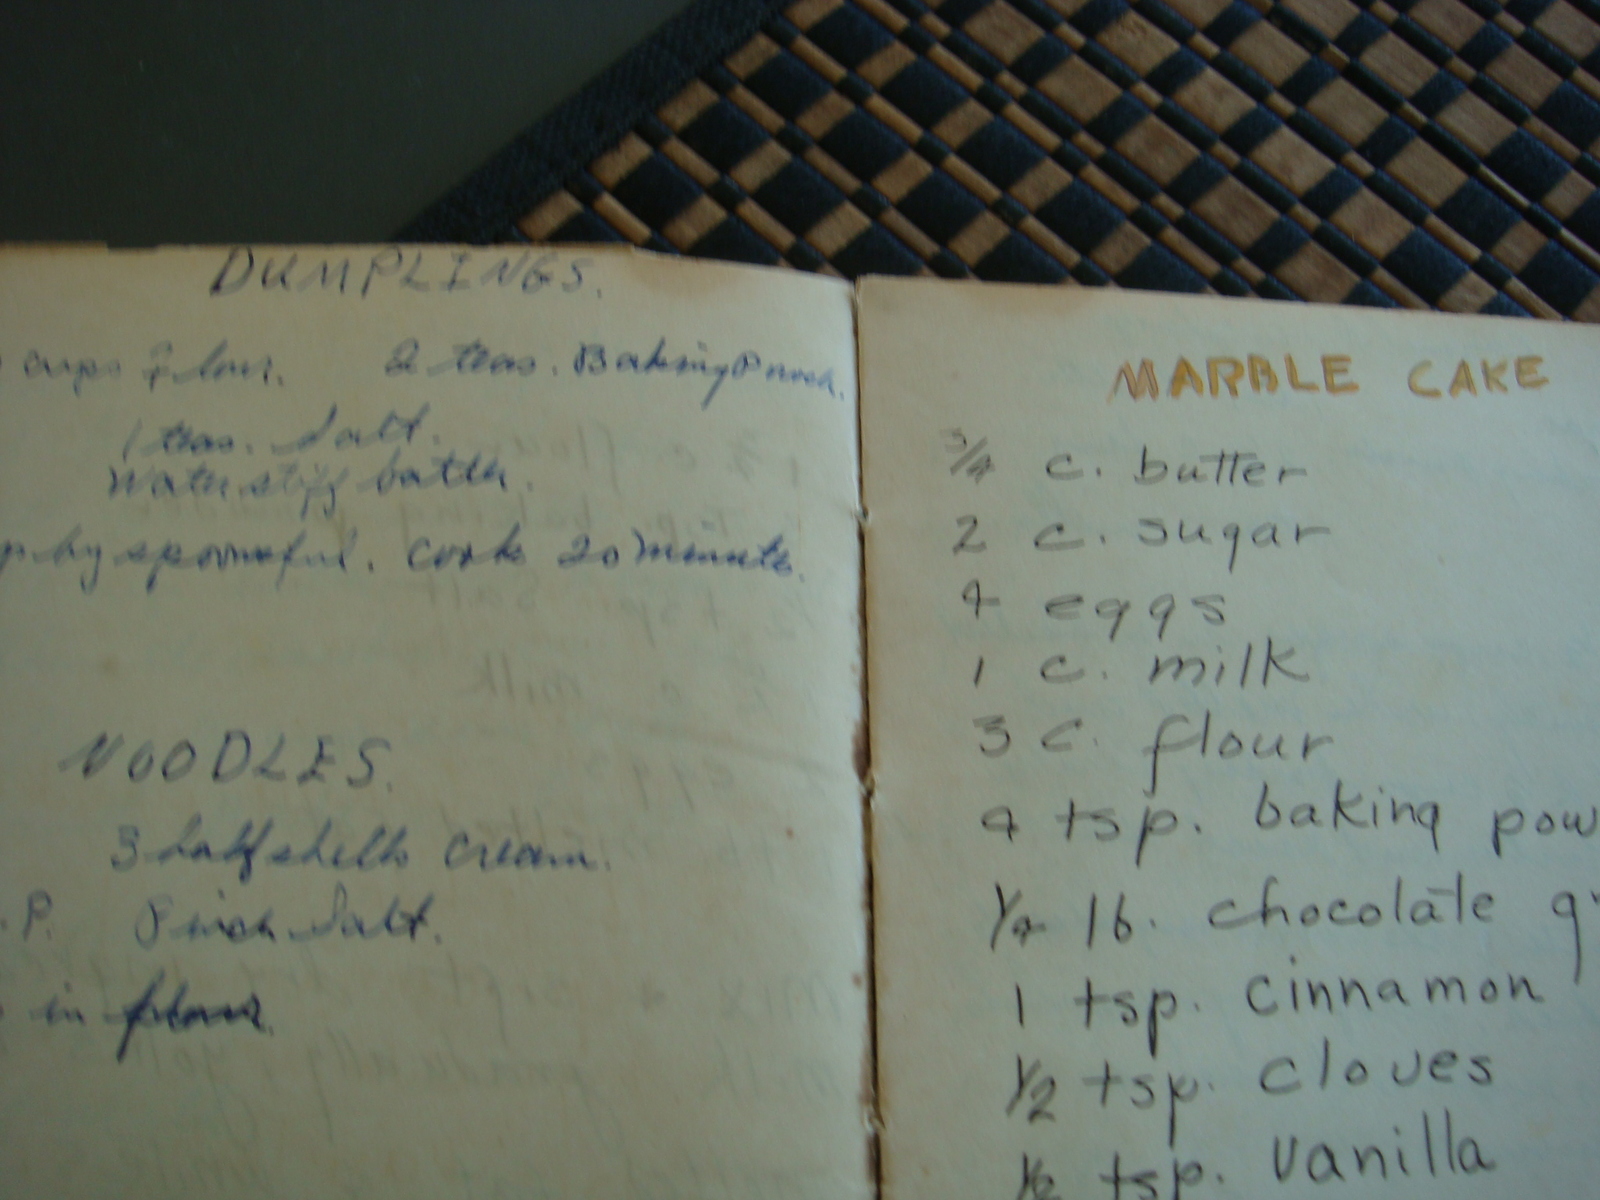 DUMPLINGS.
cups Flour. 2 teas. Baking Powd.
1 teas. Salt.
Water stiff batter.
by spoonsful. Cook 20 minutes.
NOODLES.
3 half shells cream.
.P. Pinch Salt.
in flour.
MARBLE CAKE
3/4 c. butter
2 c. sugar
4 eggs
1 c. milk
3 c. flour
4 tsp. baking pow
1/4 lb. chocolate
1 tsp. cinnamon
1/2 tsp. cloves
1/2 tsp. vanilla